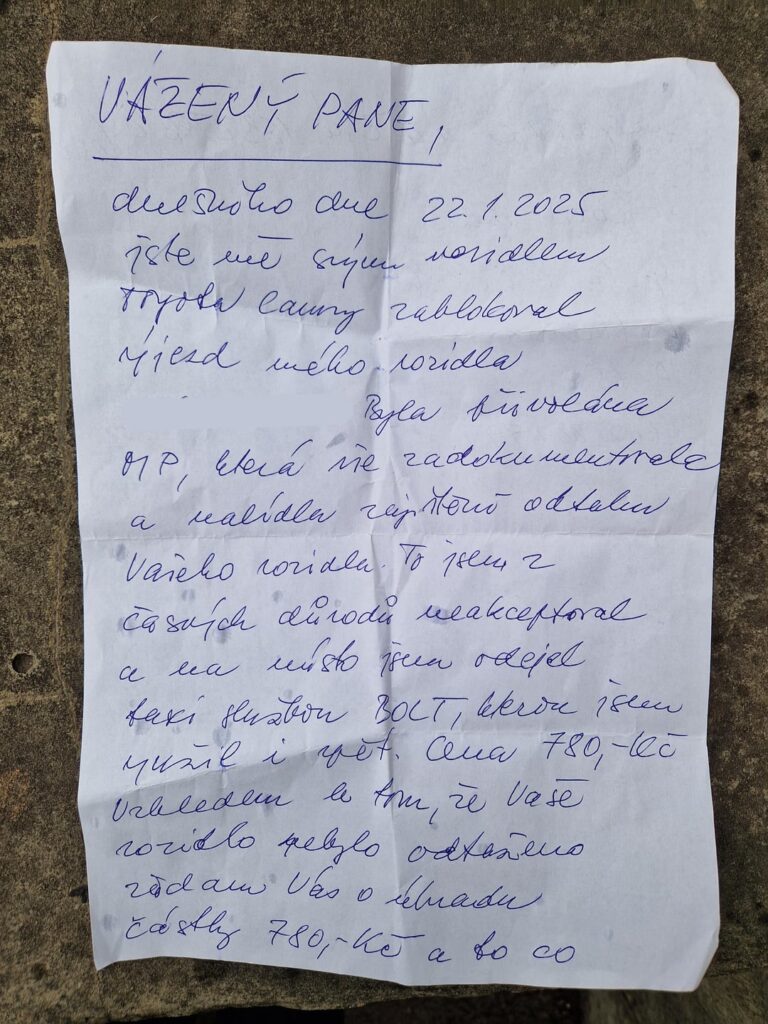 VÁŽENÝ PANE,
dnešního dne 22.1.2025
jste mě svým vozidlem
Toyota Camry zablokoval
výjezd mého vozidla
Byla přivolána
MP, která vše zadokumentovala
a nabídla zajištění odtahu
Vašeho vozidla. To jsem z
časových důvodů neakceptoval
a na místo jsem odejel
taxi službou BOLT, kterou jsem
využil i zpět. Cena 780,-Kč
Vzhledem k tom, že Vaše
vozidlo nebylo odtaženo
žádam Vás o úhradu
částky 780,-Kč a to co